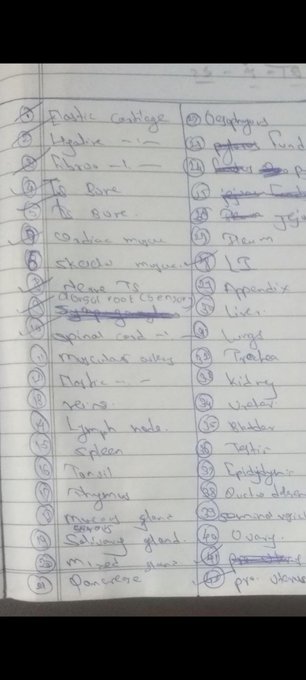 1 Elastic Cartilage
2 Hyaline -"-
3 Fibro -"-
4 TS Bone
5 LS Bone
6 cardiac muscle
8 nerve TS
9 dorsal root (sensory)
spinal cord -"-
11 muscular artery
12 Elastic -"-
13 veins
14 Lymph node
15 Spleen
16 Tonsil
17 Thymus
18 mucous gland
19 serous Salivary gland
20 mixed gland
21 Pancreas
22 Oesophagus
23 Fund
26 Jeju
27 Ileum
28 LI
29 Appendix
30 Liver
31 Lungs
32 Trachea
33 Kidney
34 Ureter
35 Bladder
36 Testis
37 Epididymis
38 Ductus deferen
39 seminal vesicle
40 Ovary
42 pro. uterus